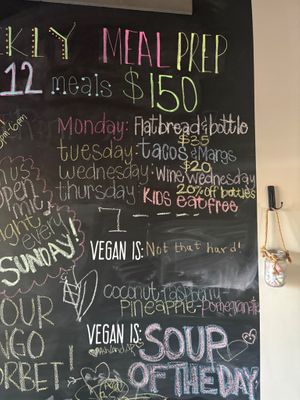 KLY MEAL PREP
12 meals $150
Monday: Flatbread & bottle
$25
tuesday: tacos & Margs
$20
wednesday: wine wednesday
20% off bottles
thursday: KIDS EAT FREE
open
mic
night
every
SUNDAY!
VEGAN IS: Not that hard!
coconut-raspberry
pineapple-pomegranate
OUR
NGO
SORBET!
VEGAN IS:
SOUP
OF THE DAY